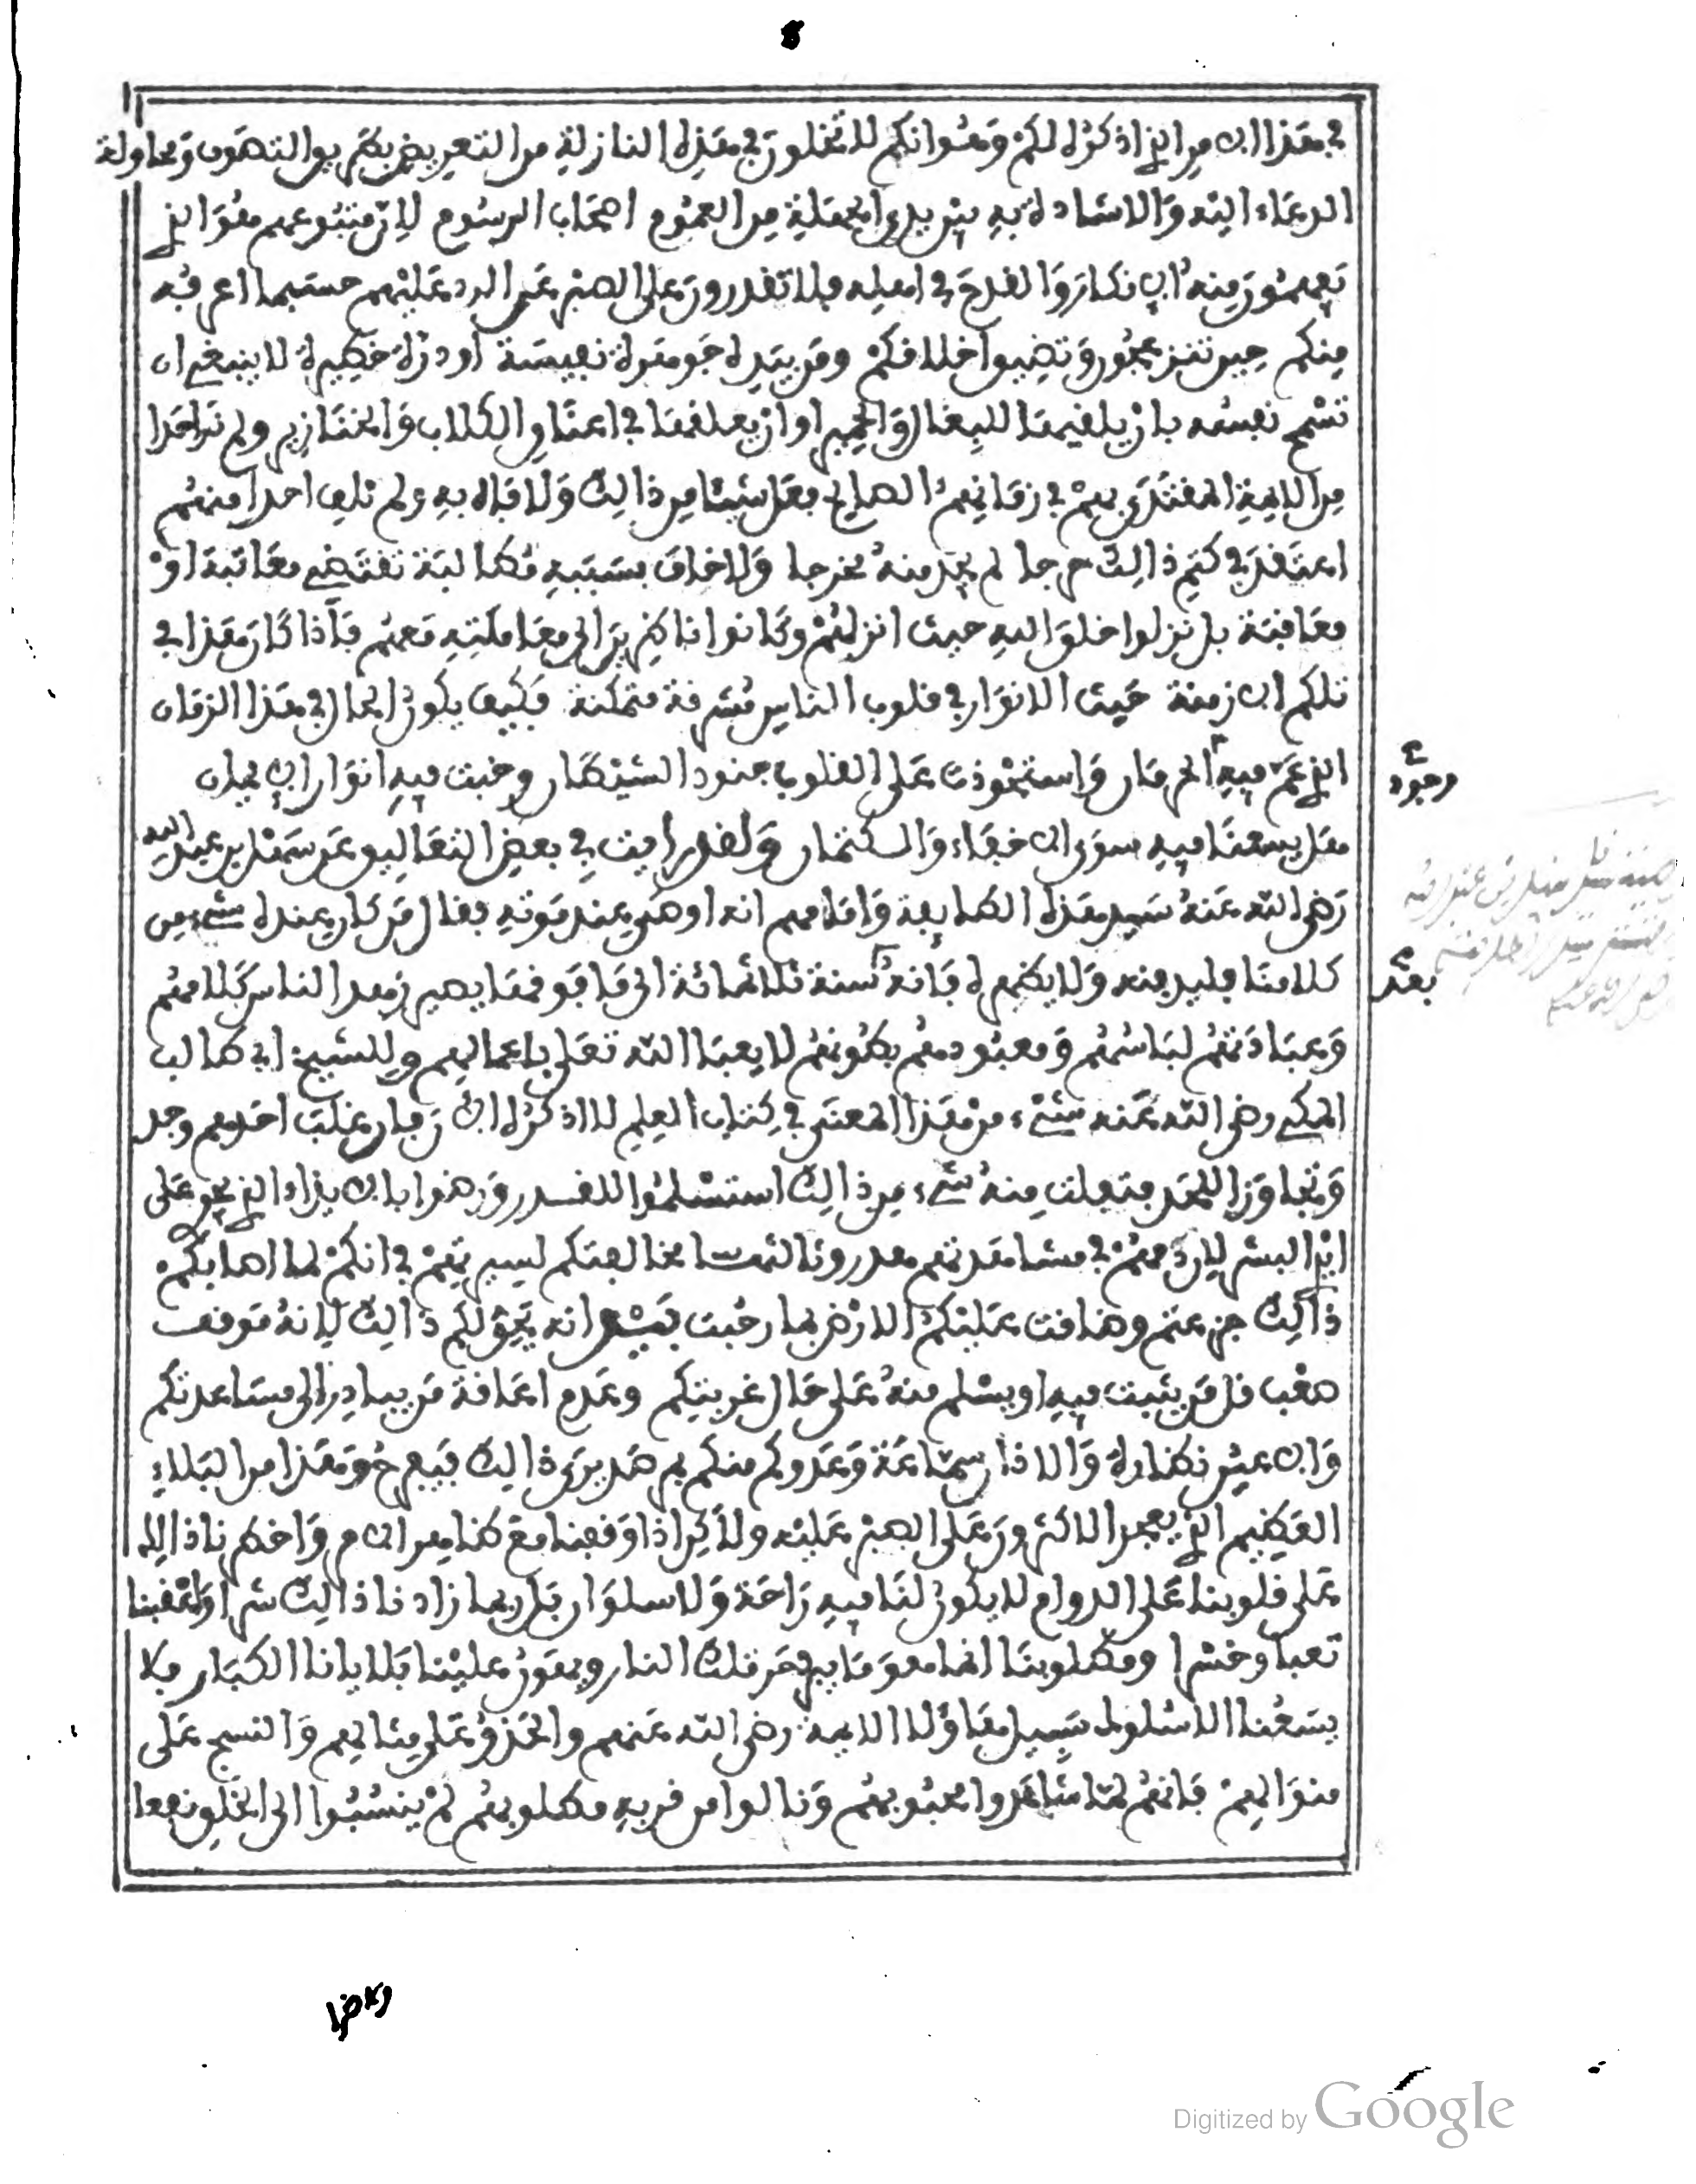 8
في هذا الان من الذي اذكره لكم وهو انكم لا تخلون في هذه النازلة من التعريض بكم بو التصوف ومحاولة
الدعاء اليه والاشادة به بين يدي الجهلة من العموم اصحاب الرسوم لان متبوعهم هو الذي
تفهمون منه الانكار والقدح في اهله فلا تقدرون على الصبر عن الرد عليهم حسبما اعرفه
منكم حين تنزعجون وتضيق اخلاقكم ومن بيده جوهرة نفيسة او درة خطيرة لا ينبغي ان
تسمح نفسه بان يلقيها للبغال والحمير او ان يعلقها في اعناق الكلاب والخنازير ولم نر احدا
من الايمة المقتدى بهم في زمانهم الصالح فعل شيئا من ذالك ولا فاه به ولم نلف احدا منهم
اعتقد في كتم ذالك حرجا لم يجد منه مخرجا ولا خاف بسببه مطالبة تقتضي معاتبة او
معاقبة بل نزلوا خلق الله حيث انزلهم وكانوا ناظرين الى معاملته معهم فاذا كان هذا في
تلكم الازمنة حيث الانوار في قلوب الناس مشرقة متمكنة فكيف يكون الحال في هذا الزمان
الذي عم فيه الحرمان واستحوذت على القلوب جنود الشيطان وخبت فيه انوار الايمان
وجود
هل يسعنا فيه سوى الاخفاء والكتمان ولقد رايت في بعض التعاليق عن سهل بن عبد الله
رضي الله عنه سيد هذه الطايفة وامامهم انه اوصى عند موته فقال من كان عنده شيء من
كلامنا فليدفنه ولا يظهره فانه سنة ثلاثمائة الى ما فوقها يصير زهد الناس كلامهم
بعد
وعبادتهم لباسهم ومعبودهم بطونهم لا يعبا الله تعالى باعمالهم وللشيخ ابي طالب
المكي رضي الله عنه شيء من هذا المعنى في كتاب العلم لا اذكره الان فان غلب احدهم وجد
وتجاوز الحد فبعلت منه شيء من ذالك استسلموا للقدر ورضوا بالابتلاء الذي يجري على
ايدي البشر لان دمهم في مشاهدتهم هدر وما التمست مخالفتكم لسيرتهم في انكم لما اصابكم
ذالك جزعتم وضاقت عليكم الارض بما رحبت فيسر انه يحق لكم ذالك لانه موقف
صعب قل من يثبت فيه او يسلم منه على حال غربتكم وعدم اعانة من يبادر الى مساعدتكم
والاعين نظارة والاذان سماعة وعدوكم منكم بمرصد يرى ذالك فيفرح وهذا من البلاء
العظيم الذي يعجز الاكثرون على الصبر عليه ولاكن اذا وقفنا مع كلام الامر واخطرنا ذالك
على قلوبنا على الدوام لا يكون لنا فيه راحة ولا سلوان بل ربما زادنا ذالك شرا واعقبنا
تعبا وخسرا ومطلوبنا انما هو ما يبرد حر تلك النار ويهون علينا بلايانا الكبار فلا
يسعنا الا سلوك سبيل هاؤلاء الايمة رضي الله عنهم والحذو على مثالهم والنسج على
منوالهم فانهم لما شاهدوا محبوبهم ونالوا من قربه مطلوبهم لم ينسبوا الى الخلق نفعا
ولا ضرا
Digitized by Google